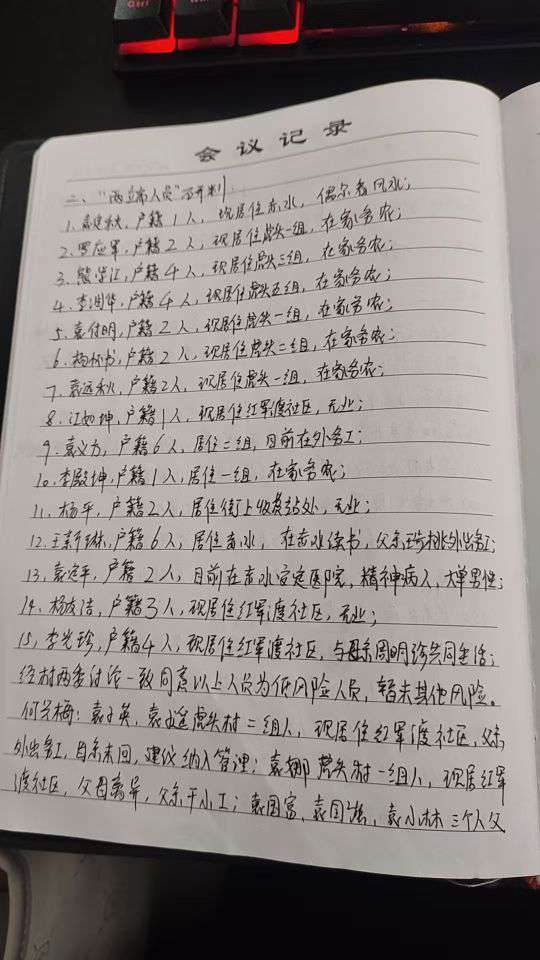 会议记录
二、“两类人员”研判:
1. 袁建秋,户籍1人,现居住赤水,偶尔看风水;
2. 罗应军,户籍2人,现居住虎头一组,在家务农;
3. 熊学江,户籍4人,现居住虎头三组,在家务农;
4. 李润华,户籍4人,现居住虎头五组,在家务农;
5. 袁付明,户籍2人,现居住虎头一组,在家务农;
6. 杨怀书,户籍2人,现居住虎头二组,在家务农;
7. 袁远秋,户籍2人,现居住虎头一组,在家务农;
8. 江如坤,户籍1人,现居住红军渡社区,无业;
9. 袁义方,户籍6人,居住二组,目前在外务工;
10. 李殿坤,户籍1人,居住一组,在家务农;
11. 杨平,户籍2人,居住街上收费站处,无业;
12. 王,户籍6人,居住赤水,在赤水读书,父亲外出务工;
13. 袁远平,户籍2人,目前在赤水安定医院,精神病人,大单男性;
14. 杨友洁,户籍3人,现居住红军渡社区,无业;
15. 李光珍,户籍4人,现居住红军渡社区,与母亲周明珍共同生活;
经村两委讨论一致同意以上人员为低风险人员,暂未其他风险。
何兴梅:袁子英,袁子遥虎头村二组人,现居住红军渡社区,父亲
外出务工,母亲未回,建议纳入管理;袁娜虎头村一组人,现居红军
渡社区,父母离异,父亲干小工;袁国富,袁国,袁小林三个人父